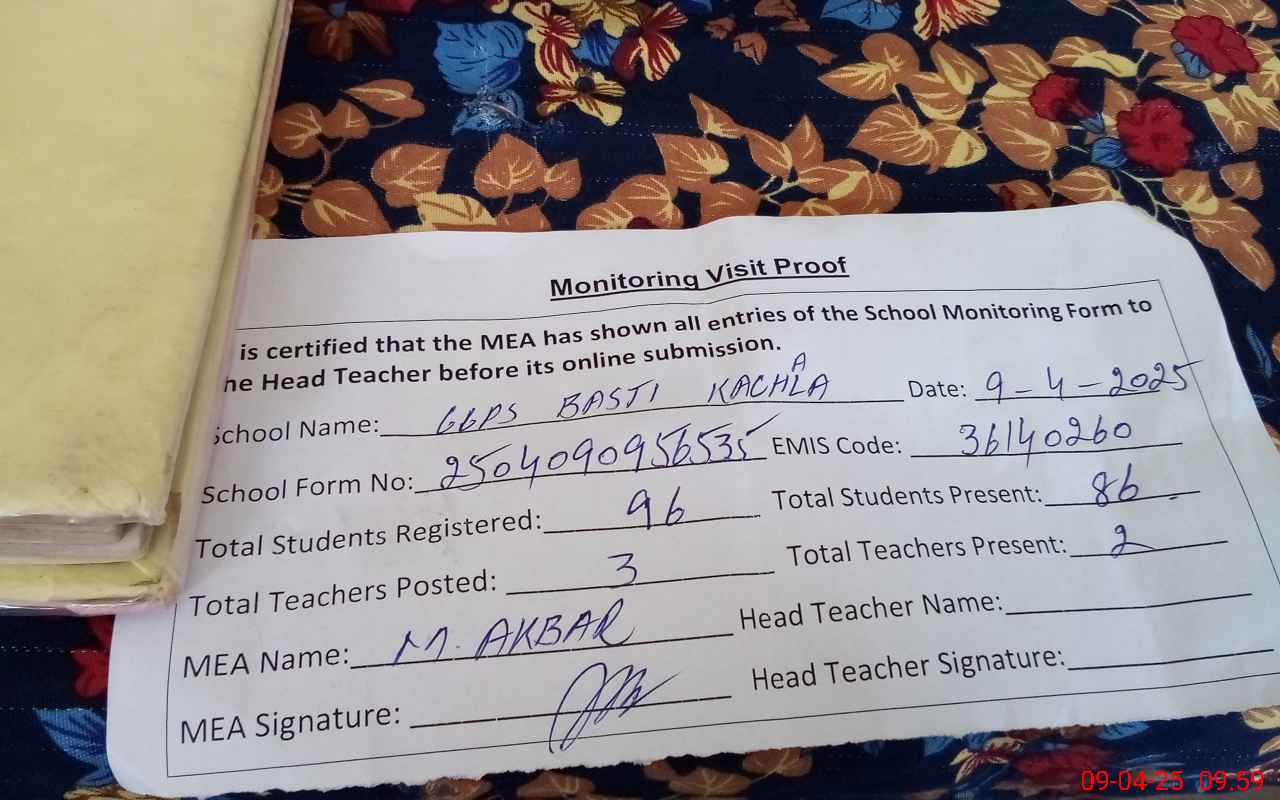 Monitoring Visit Proof
is certified that the MEA has shown all entries of the School Monitoring Form to
he Head Teacher before its online submission.
School Name: GGPS BASTI KACHLA A Date: 9-4-2025
School Form No: 2504090956535 EMIS Code: 36140260
Total Students Registered: 96 Total Students Present: 86
Total Teachers Posted: 3 Total Teachers Present: 2
MEA Name: M. AKBAR Head Teacher Name:
MEA Signature: Head Teacher Signature:
09-04-25 09:59